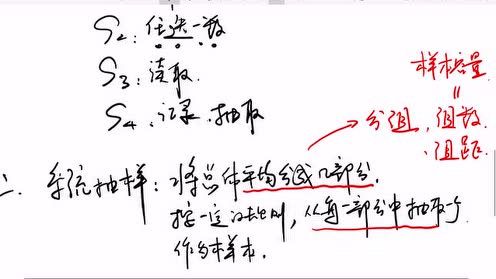 S₂: 任选一数
S₃: 读取.
S₄. 记录. 抽取
样本容量
||
分组, 组数, 组距.
二. 系统抽样: 将总体平均分成几部分.
按一定的规则, 从每一部分中抽取一个
作为样本.